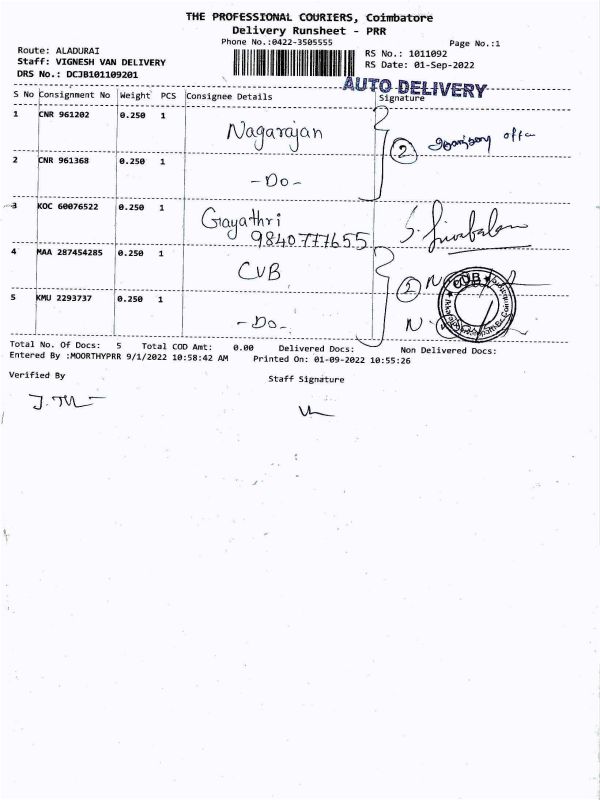 THE PROFESSIONAL COURIERS, Coimbatore
Delivery Runsheet - PRR
Phone No.:0422-3505555
Page No.:1
Route: ALADURAI
RS No.: 1011092
Staff: VIGNESH VAN DELIVERY
RS Date: 01-Sep-2022
DRS No.: DCJB101109201
AUTO DELIVERY
S No Consignment No Weight PCS Consignee Details Signature
1 CNR 961202 0.250 1 Nagarajan
2
2 CNR 961368 0.250 1 -Do-
3 KOC 60076522 0.250 1 Gayathri
9840777655
S. Sivabalan
4 MAA 287454285 0.250 1 CUB
2
CUB
5 KMU 2293737 0.250 1 -Do-
Total No. Of Docs: 5 Total COD Amt: 0.00 Delivered Docs: Non Delivered Docs:
Entered By :MOORTHYPRR 9/1/2022 10:58:42 AM Printed On: 01-09-2022 10:55:26
Verified By
Staff Signature